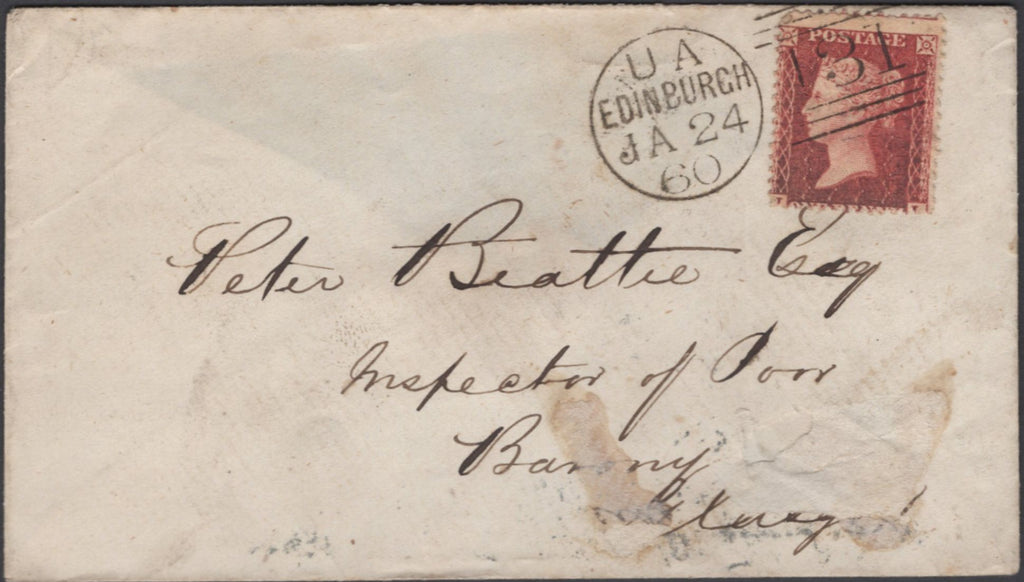 UA
EDINBURGH
JA 24
60
POSTAGE
131
Peter Beattie Esq
Inspector of Poor
Barony